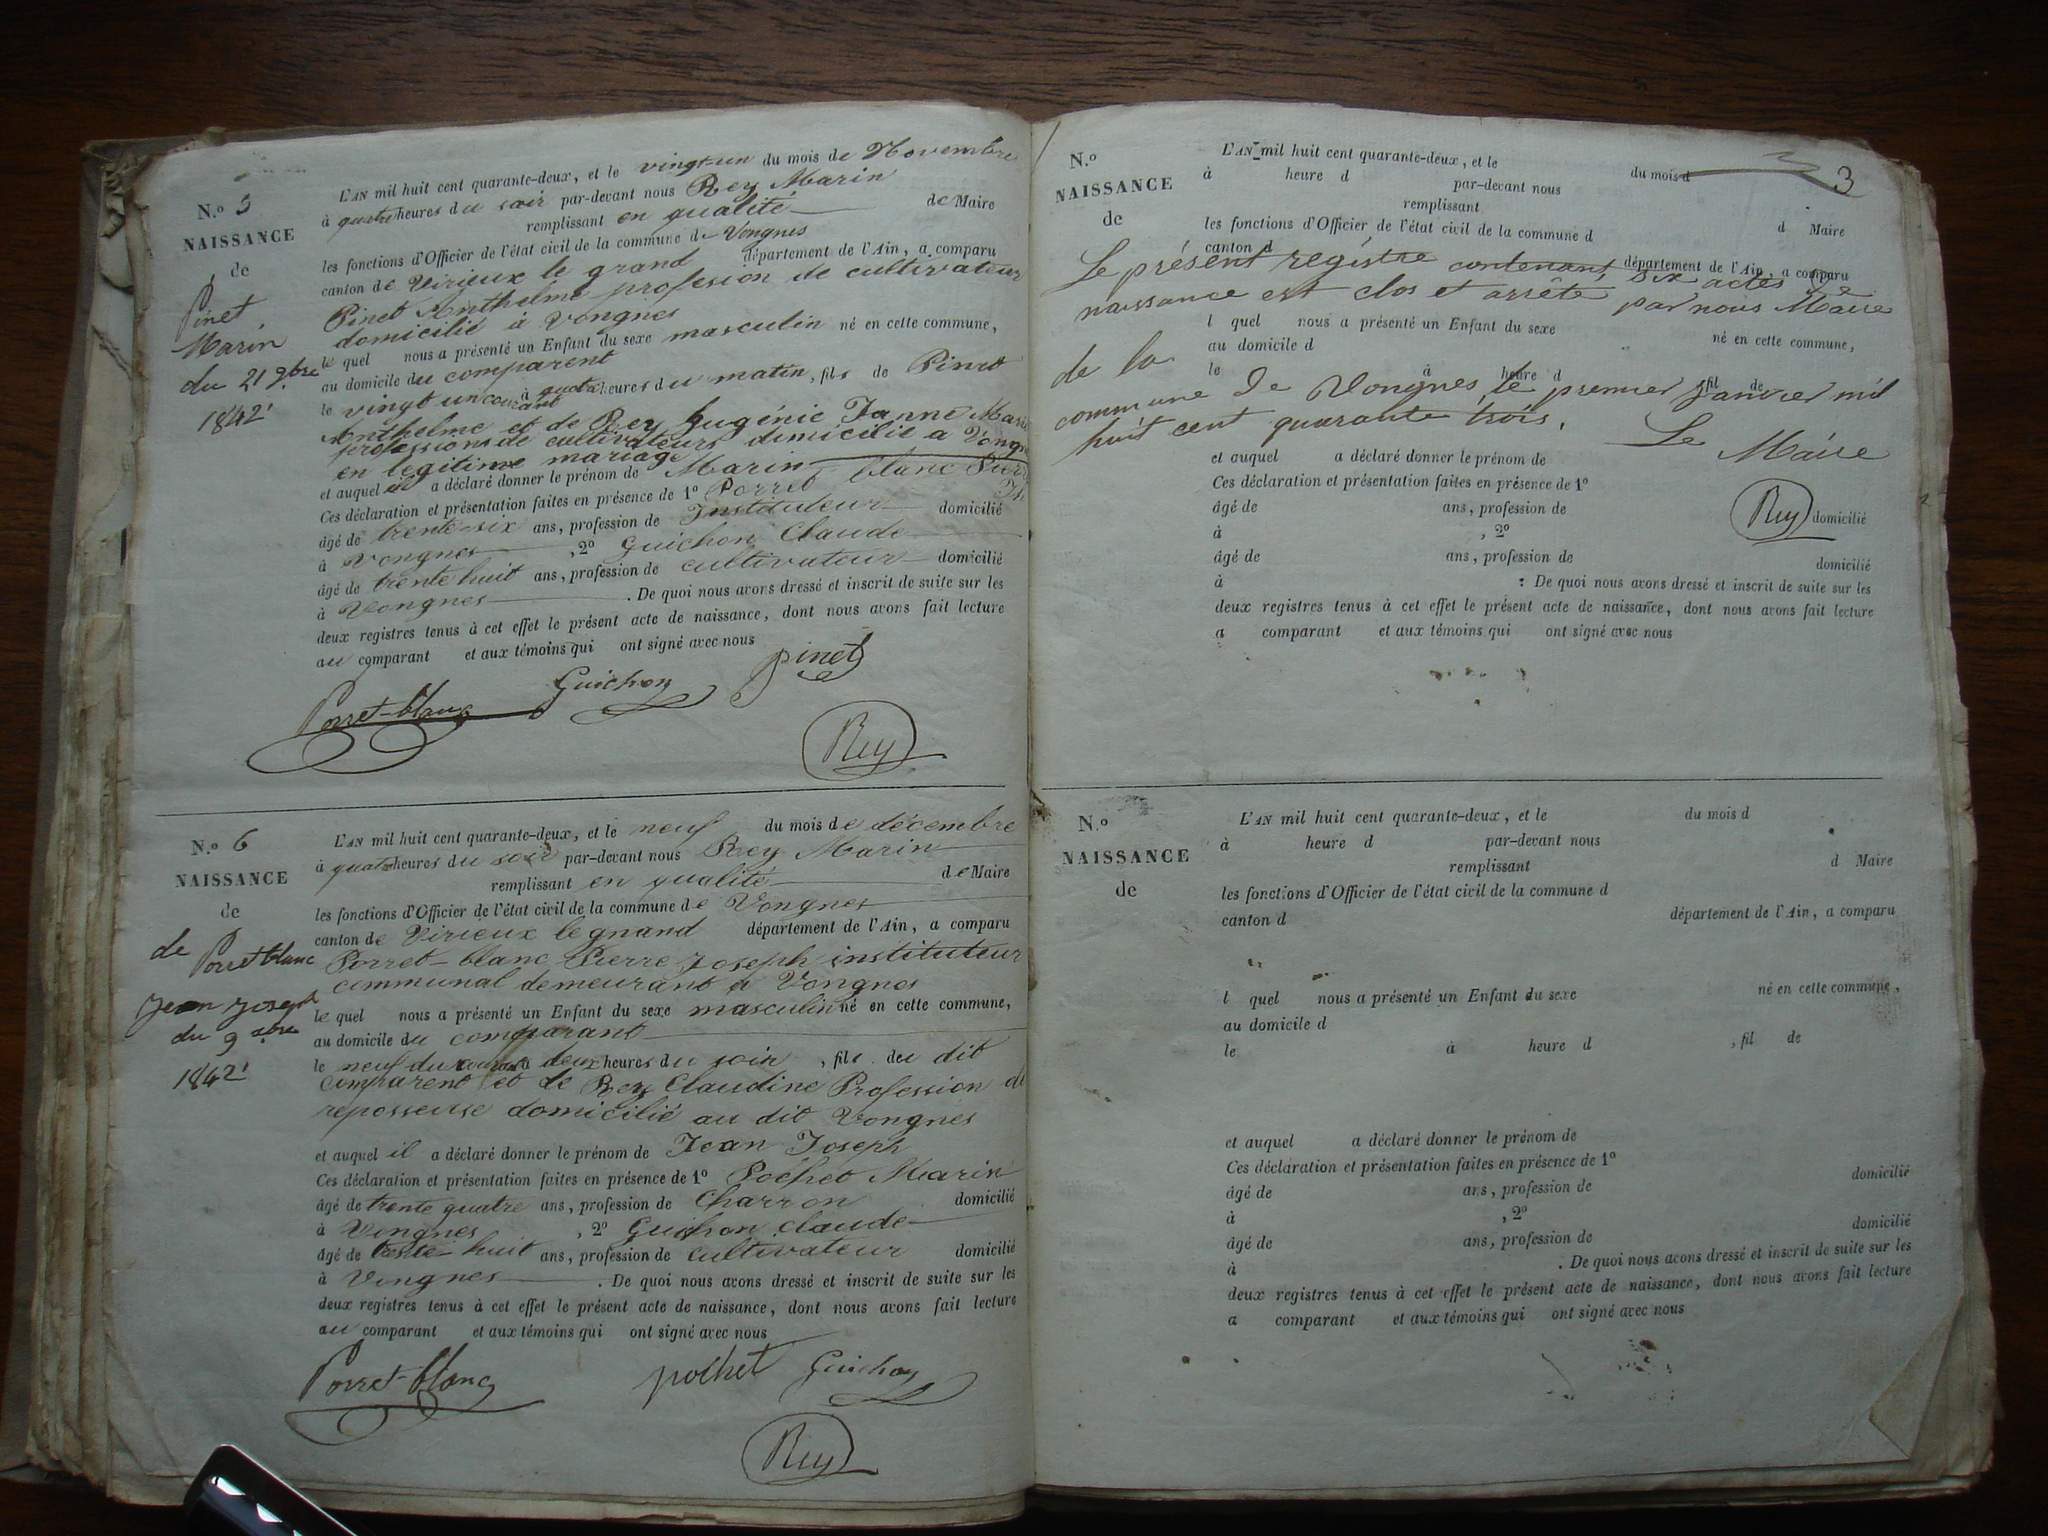 N.o 5
NAISSANCE
de
Pinet
Marin
du 21 9bre
1842
L'AN mil huit cent quarante-deux, et le vingt-un du mois de Novembre
à quatre heures du soir par-devant nous Rey Marin
remplissant en qualité de Maire
les fonctions d'Officier de l'état civil de la commune de Vongnes
canton de Virieux le grand département de l'Ain, a comparu
Pinet Anthelme profesion de cultivateur
domicilié à Vongnes
le quel nous a présenté un Enfant du sexe masculin né en cette commune,
au domicile du comparent
le vingt un courant à quatre heures du matin, fils de Pinet
Anthelme et de Rey Eugénie Janne Marie
professions de cultivateurs domicilié a Vongnes
en legitime mariage
et auquel il a déclaré donner le prénom de Marin
Ces déclaration et présentation faites en présence de 1o Porret blanc Pierre
âgé de trente-six ans, profession de Instituteur domicilié
à Vongnes , 2o Guichon Claude
âgé de trente huit ans, profession de cultivateur domicilié
à Vongnes . De quoi nous avons dressé et inscrit de suite sur les
deux registres tenus à cet effet le présent acte de naissance, dont nous avons fait lecture
au comparant et aux témoins qui ont signé avec nous
Pinet
Guichon
Porret-blanc
Rey
N.o 6
NAISSANCE
de
de
Porret blanc
Jean Joseph
du 9 xbre
1842
L'AN mil huit cent quarante-deux, et le neuf du mois de décembre
à quatre heures du soir par-devant nous Rey Marin
remplissant en qualité de Maire
les fonctions d'Officier de l'état civil de la commune de Vongnes
canton de Virieux le gnand département de l'Ain, a comparu
Porret-blanc Pierre Joseph instituteur
communal demeurant à Vongnes
le quel nous a présenté un Enfant du sexe masculin né en cette commune,
au domicile du comparant
le neuf du courant à deux heures du soir , fils du dit
comparent et de Rey Claudine Profession de
reposseuse domicilié au dit Vongnes
et auquel il a déclaré donner le prénom de Jean Joseph
Ces déclaration et présentation faites en présence de 1o Pochet Marin
âgé de trente quatre ans, profession de Charron domicilié
à Vongnes , 2o Guichon claude
âgé de trente huit ans, profession de cultivateur domicilié
à Vongnes . De quoi nous avons dressé et inscrit de suite sur les
deux registres tenus à cet effet le présent acte de naissance, dont nous avons fait lecture
au comparant et aux témoins qui ont signé avec nous
Porret-blanc pochet Guichon
Rey
3
N.o
NAISSANCE
de
L'AN mil huit cent quarante-deux, et le du mois d
à heure d par-devant nous
remplissant d Maire
les fonctions d'Officier de l'état civil de la commune d
canton d département de l'Ain, a comparu
Le présent registre contenant six actes de
naissance est clos et arrêté par nous Maire
l quel nous a présenté un Enfant du sexe né en cette commune,
au domicile d
de la
le à heure d , fil de
commune de Vongnes le premier Janvier mil
huit cent quarante trois.
Le Maire
et auquel a déclaré donner le prénom de
Ces déclaration et présentation faites en présence de 1o
Rey
âgé de ans, profession de domicilié
à , 2o
âgé de ans, profession de domicilié
à . De quoi nous avons dressé et inscrit de suite sur les
deux registres tenus à cet effet le présent acte de naissance, dont nous avons fait lecture
a comparant et aux témoins qui ont signé avec nous
N.o
NAISSANCE
de
L'AN mil huit cent quarante-deux, et le du mois d
à heure d par-devant nous
remplissant d Maire
les fonctions d'Officier de l'état civil de la commune d
canton d département de l'Ain, a comparu
l quel nous a présenté un Enfant du sexe né en cette commune,
au domicile d
le à heure d , fil de
et auquel a déclaré donner le prénom de
Ces déclaration et présentation faites en présence de 1o
âgé de ans, profession de domicilié
à , 2o
âgé de ans, profession de domicilié
à . De quoi nous avons dressé et inscrit de suite sur les
deux registres tenus à cet effet le présent acte de naissance, dont nous avons fait lecture
a comparant et aux témoins qui ont signé avec nous